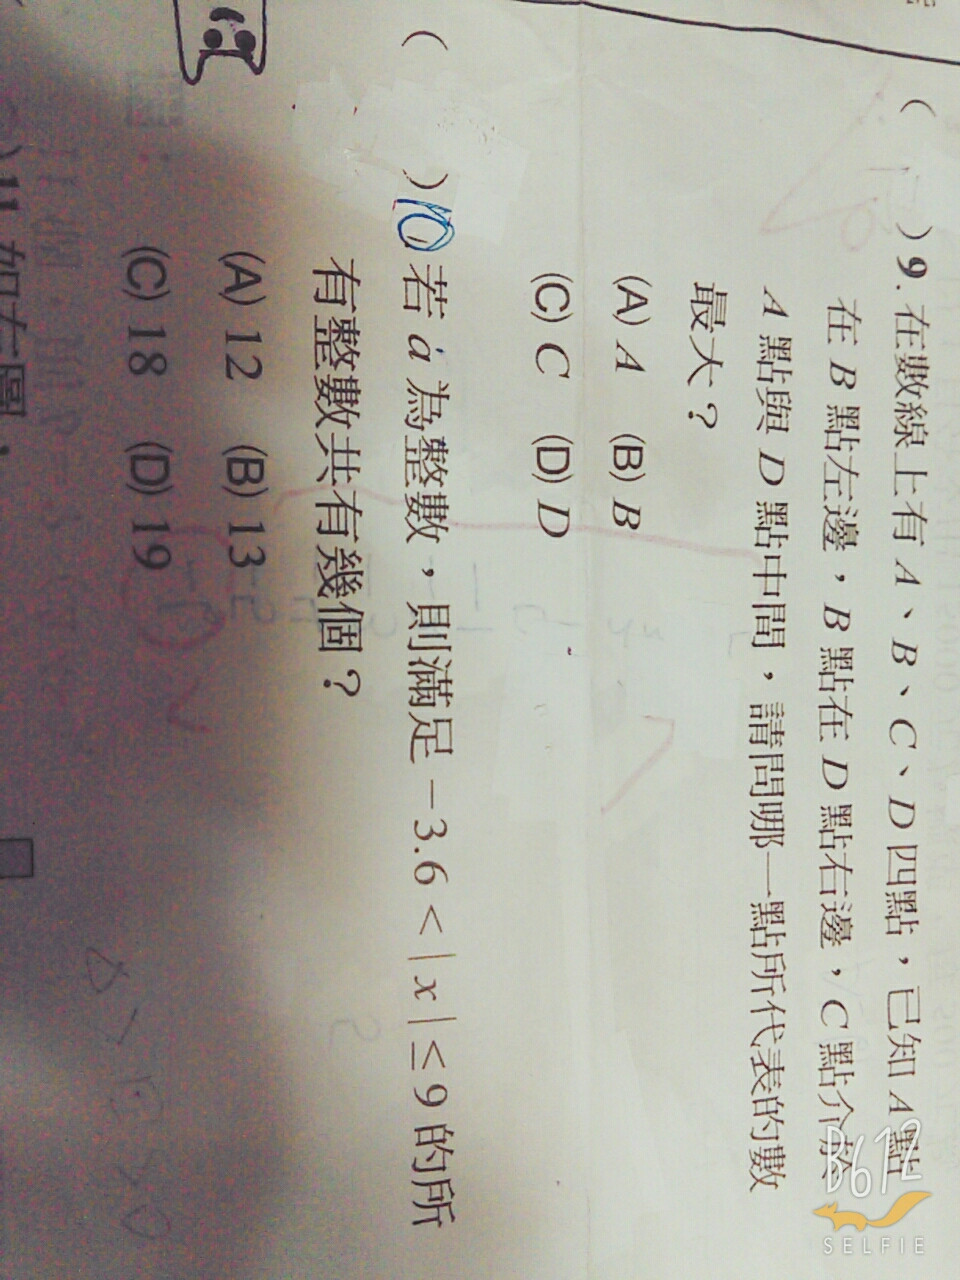 ( )9. 在數線上有 A、B、C、D 四點，已知 A 點
在 B 點左邊，B 點在 D 點右邊，C 點介於
A 點與 D 點中間，請問哪一點所代表的數
最大？
(A) A (B) B
(C) C (D) D
( )10. 若 a 為整數，則滿足 −3.6 < | x | ≤ 9 的所
有整數共有幾個？
(A) 12 (B) 13
(C) 18 (D) 19
)11. 如右圖，
B612
SELFIE